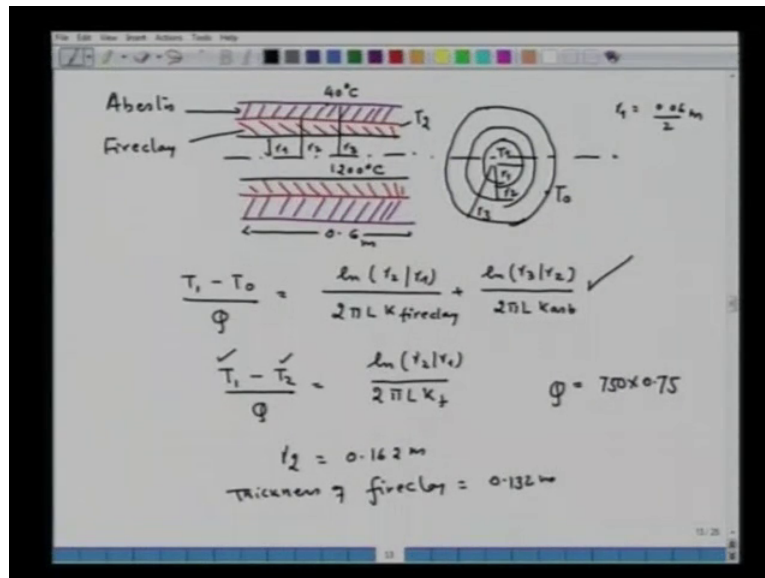 File Edit View Insert Actions Tools Help
40°C
Abestis
T2
r1 = 0.06/2 m
Fireclay
r1 r2 r3
T1
r1
r2
r3
T0
1200°C
0.6 m
T1 - T0 / Q = ln (r2/r1) / 2πL K fireclay + ln (r3/r2) / 2πL Kasb ✓
✓ ✓
T1 - T2 / Q = ln (r2/r1) / 2πL Kf
Q = 750×0.75
r2 = 0.162 m
Thickness of fireclay = 0.132 m
13